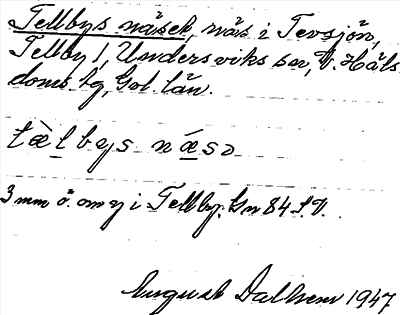 Tellbys näset, näs i Tevsjön,
Tellby 1, Undersviks sn, V. Häls.
doms tg, Gvl. län.
tæ̀lbys næsə
3 mm ö. om y i Tellby. Gn 84 S.V.
August Dalhem 1947